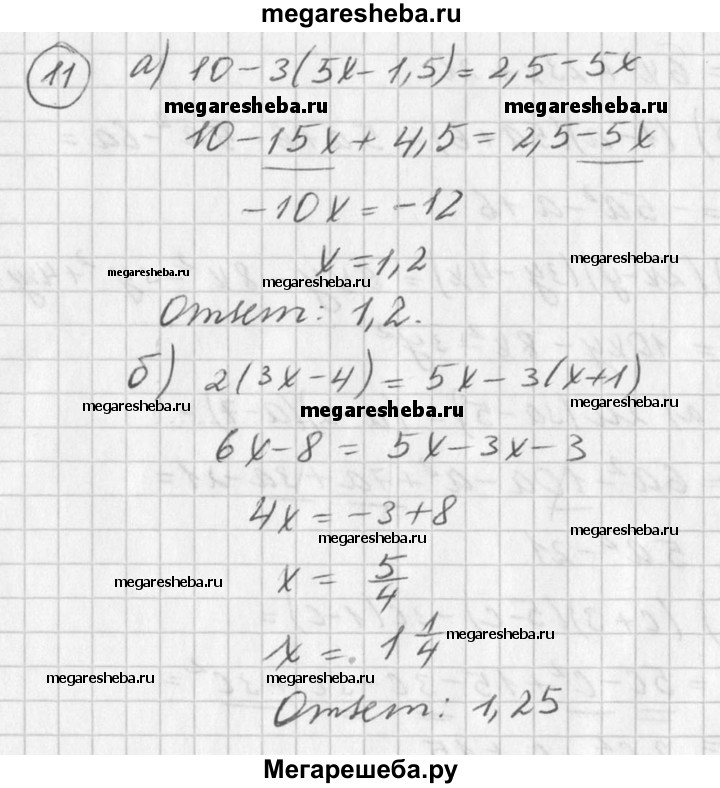 megaresheba.ru
11 а) 10-3(5x-1,5)=2,5-5x
megaresheba.ru megaresheba.ru
10-15x+4,5=2,5-5x
-10x=-12
x=1,2
megaresheba.ru megaresheba.ru megaresheba.ru
Ответ: 1,2.
б) 2(3x-4)=5x-3(x+1)
megaresheba.ru megaresheba.ru megaresheba.ru
6x-8=5x-3x-3
4x=-3+8
megaresheba.ru megaresheba.ru
x=5/4
megaresheba.ru
x=.1 1/4
megaresheba.ru
megaresheba.ru megaresheba.ru
Ответ: 1,25
Мегарешеба.ру